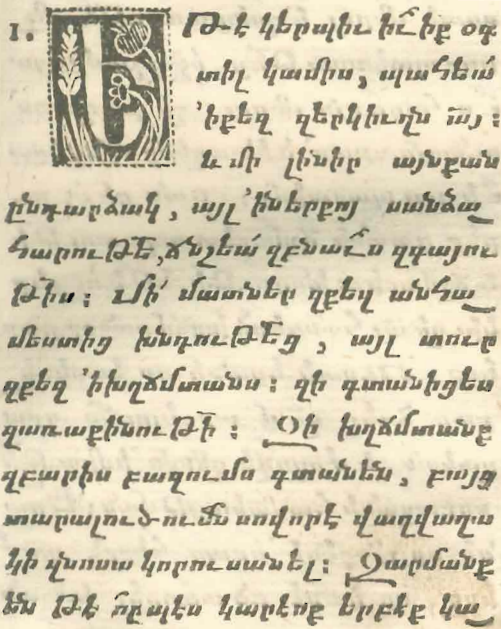 1. Եթէ կերպիւ իւ̃իք օգ
տիլ կամիս, պահեա՛
՚ի քեզ զերկիւղն ա̅յ ։
և մի լինիր այնքան
ընդարձակ, այլ ՚ի ներքոյ սանձա
հարութե̅, ճնշեա՛ զբնաւ̃ս զգայու
թի̅ս ։ Մի՛ մատներ զքեզ անհա
մեստից խնդութե̅ց , այլ տուր
զքեզ ՚ի խղճմտանս ։ զի գտանիցես
զառաքինութի̅ ։ Զի խղճմտանք
զբարիս բազումս գտանեն, բայց
տարալուծումն սովորէ վաղվաղա
կի վնոսա կորուսանել ։ Զարմանք
են թէ ո̅րպէս կարէոք երբէք կա